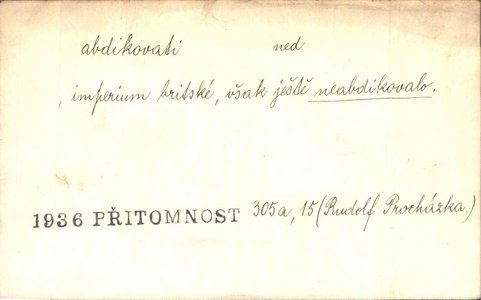 abdikovati ned
, imperium britské, však ještě neabdikovalo.
1936 PŘITOMNOST 305a, 15 (Rudolf Procházka.)